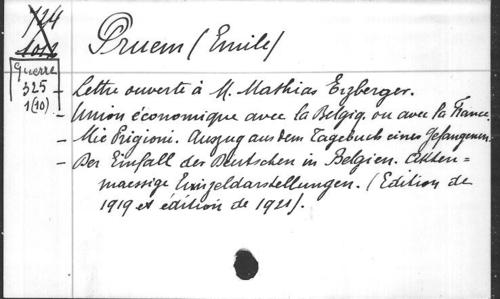 1/24
2012
Pruem (Emile)
Guerre
325
1(10)
- Lettre ouverte à M. Mathias Erzberger.
- Union économique avec la Belgiq. ou avec la France.
- Mie Prigioni. Auszug aus dem Tagebuch eines Gefangenen.
- Der Einfall der Deutschen in Belgien. Akten-
maessige Einzeldarstellungen. (Edition de
1919 et édition de 1921).